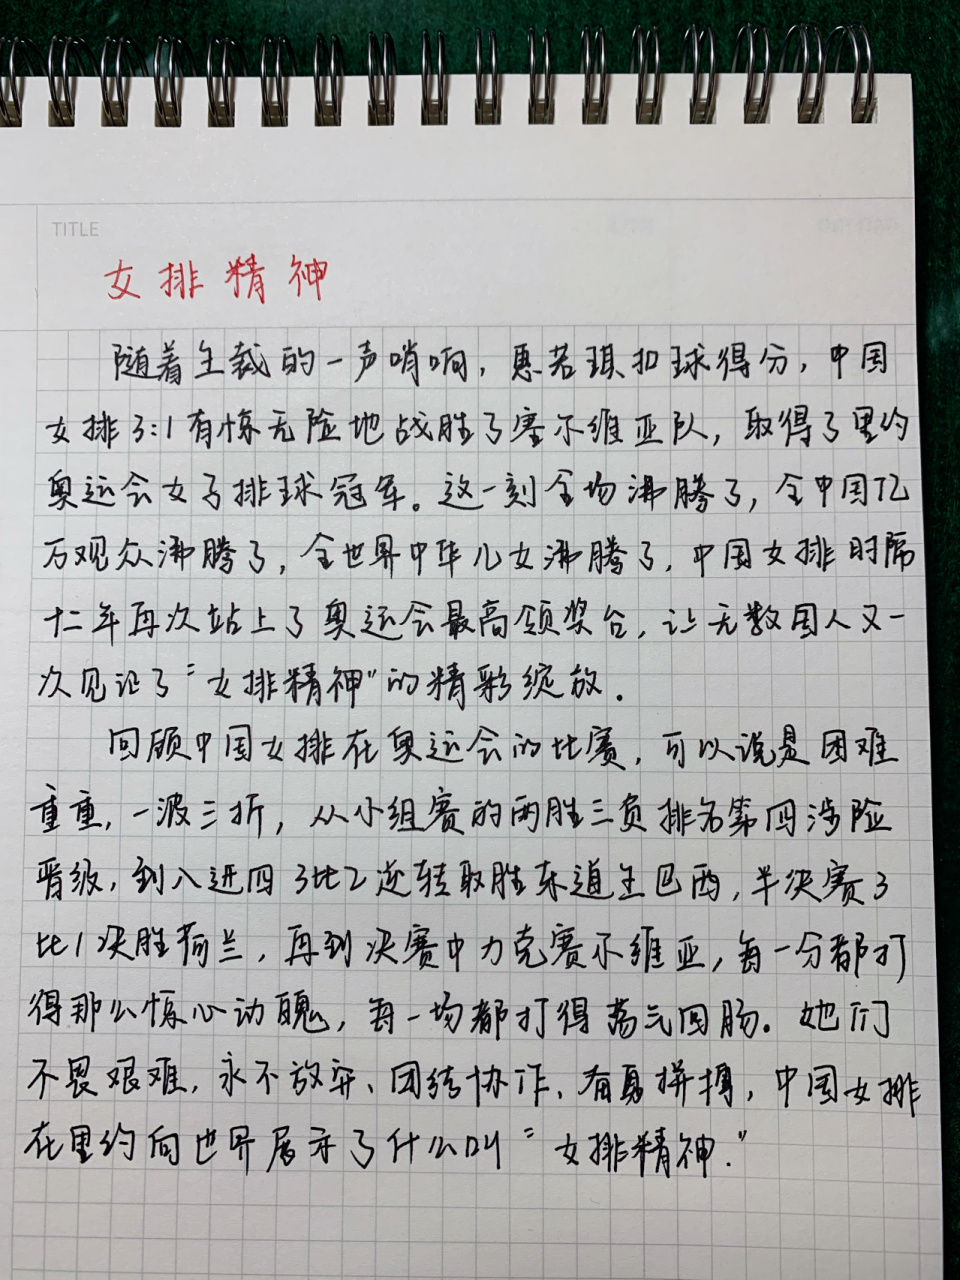 TITLE
女排精神
随着主裁的一声哨响，惠若琪扣球得分，中国
女排3:1有惊无险地战胜了塞尔维亚队，取得了里约
奥运会女子排球冠军。这一刻全场沸腾了，全中国亿
万观众沸腾了，全世界中华儿女沸腾了，中国女排时隔
十二年再次站上了奥运会最高领奖台，让无数国人又一
次见证了“女排精神”的精彩绽放．
回顾中国女排在奥运会的比赛，可以说是困难
重重，一波三折，从小组赛的两胜三负排名第四涉险
晋级，到八进四3比2逆转取胜东道主巴西，半决赛3
比1决胜荷兰，再到决赛中力克赛尔维亚，每一分都打
得那么惊心动魄，每一场都打得荡气回肠．她们
不畏艰难、永不放弃、团结协作、奋勇拼搏，中国女排
在里约向世界展示了什么叫“女排精神．”